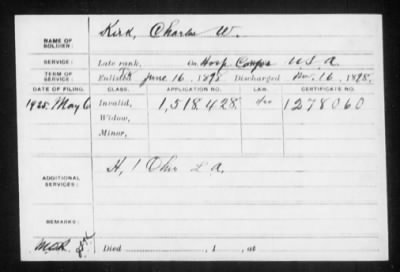 NAME OF SOLDIER: Kirk, Charles W.
SERVICE: Late rank, Hosp. Corps U S A
TERM OF SERVICE: Enlisted June 16, 1898 Discharged Nov. 16, 1898.
DATE OF FILING. CLASS. APPLICATION NO. LAW. CERTIFICATE NO.
1925. May 6 Invalid, 1,518,428 1278060
Widow,
Minor,
ADDITIONAL SERVICES: H, 1 Ohio L A.
REMARKS:
Died , 1 , at